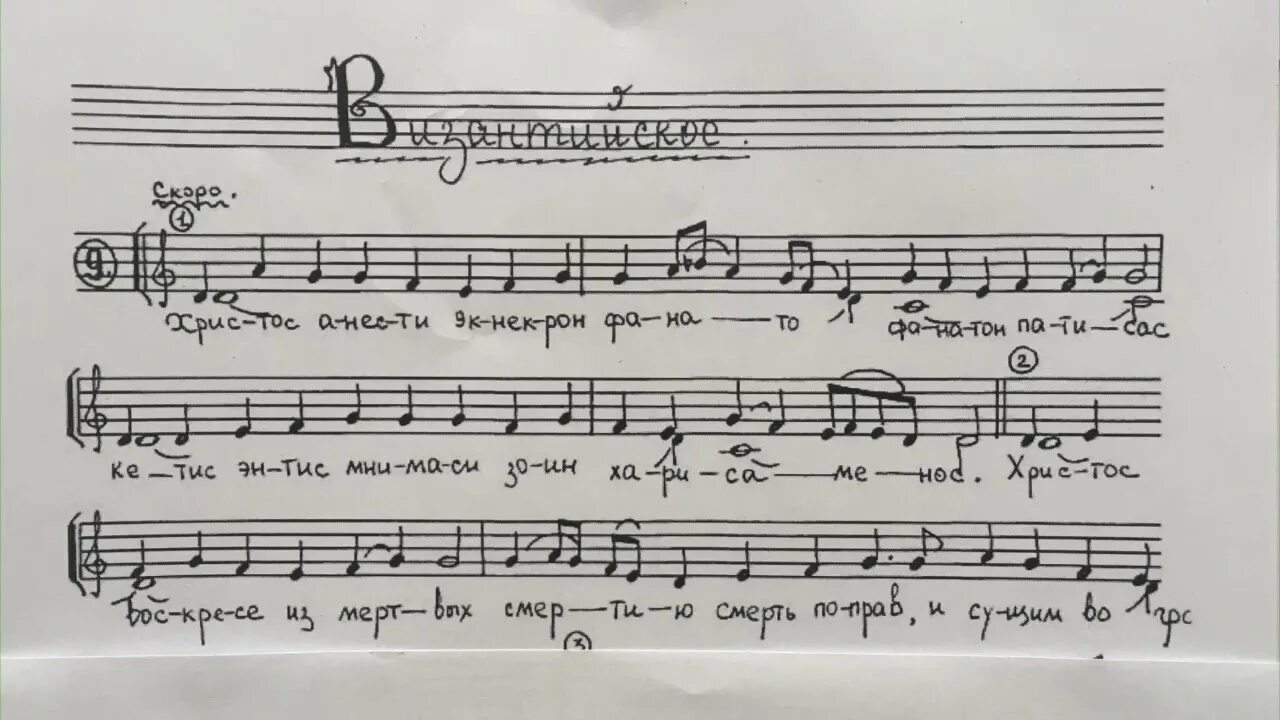 Византийское.
Скоро.
1
9.
Хрис-тос а-нес-ти эк-нек-рон фа-на-то фа-на-тон па-ти-сас
2
ке-тис эн-тис мни-ма-си зо-ин ха-ри-са-ме-нос. Хрис-тос
Вос-кре-се из мерт-вых смер-ти-ю смерть по-прав, и су-щим во
3